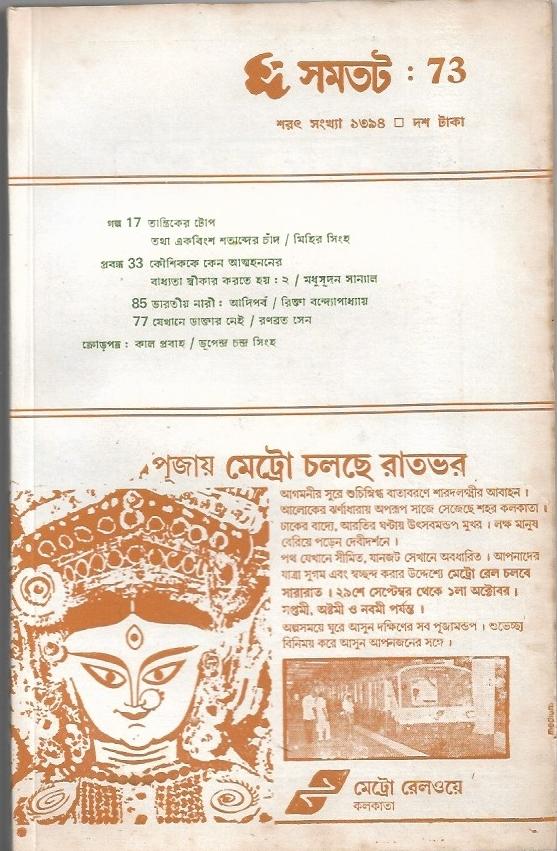 সমতট : 73
শরৎ সংখ্যা ১৩৯৪ □ দশ টাকা
গল্প 17 তান্ত্রিকের টোপ
তথা একবিংশ শতাব্দের চাঁদ / মিহির সিংহ
প্রবন্ধ 33 কৌশিককে কেন আত্মহননের
বাধ্যতা স্বীকার করতে হয় : ২ / মধুসূদন সান্যাল
85 ভারতীয় নারী : আদিপর্ব / রিক্তা বন্দ্যোপাধ্যায়
77 যেখানে ডাক্তার নেই / রণব্রত সেন
ক্রোড়পত্র : কাল প্রবাহ / ভূপেন্দ্র চন্দ্র সিংহ
পূজায় মেট্রো চলছে রাতভর
আগমনীর সুরে শুচিস্নিগ্ধ বাতাবরণে শারদলক্ষ্মীর আবাহন ।
আলোকের ঝর্ণাধারায় অপরূপ সাজে সেজেছে শহর কলকাতা ।
ঢাকের বাদ্যে, আরতির ঘণ্টায় উৎসবমন্ডপ মুখর । লক্ষ মানুষ
বেরিয়ে পড়েন দেবীদর্শনে ।
পথ যেখানে সীমিত, যানজট সেখানে অবধারিত । আপনাদের
যাত্রা সুগম এবং স্বচ্ছন্দ করার উদ্দেশ্যে মেট্রো রেল চলবে
সারারাত । ২৯শে সেপ্টেম্বর থেকে ১লা অক্টোবর ।
সপ্তমী, অষ্টমী ও নবমী পর্যন্ত ।
অল্পসময়ে ঘুরে আসুন দক্ষিণের সব পূজামন্ডপ । শুভেচ্ছা
বিনিময় করে আসুন আপনজনের সঙ্গে ।
মেট্রো রেলওয়ে
কলকাতা